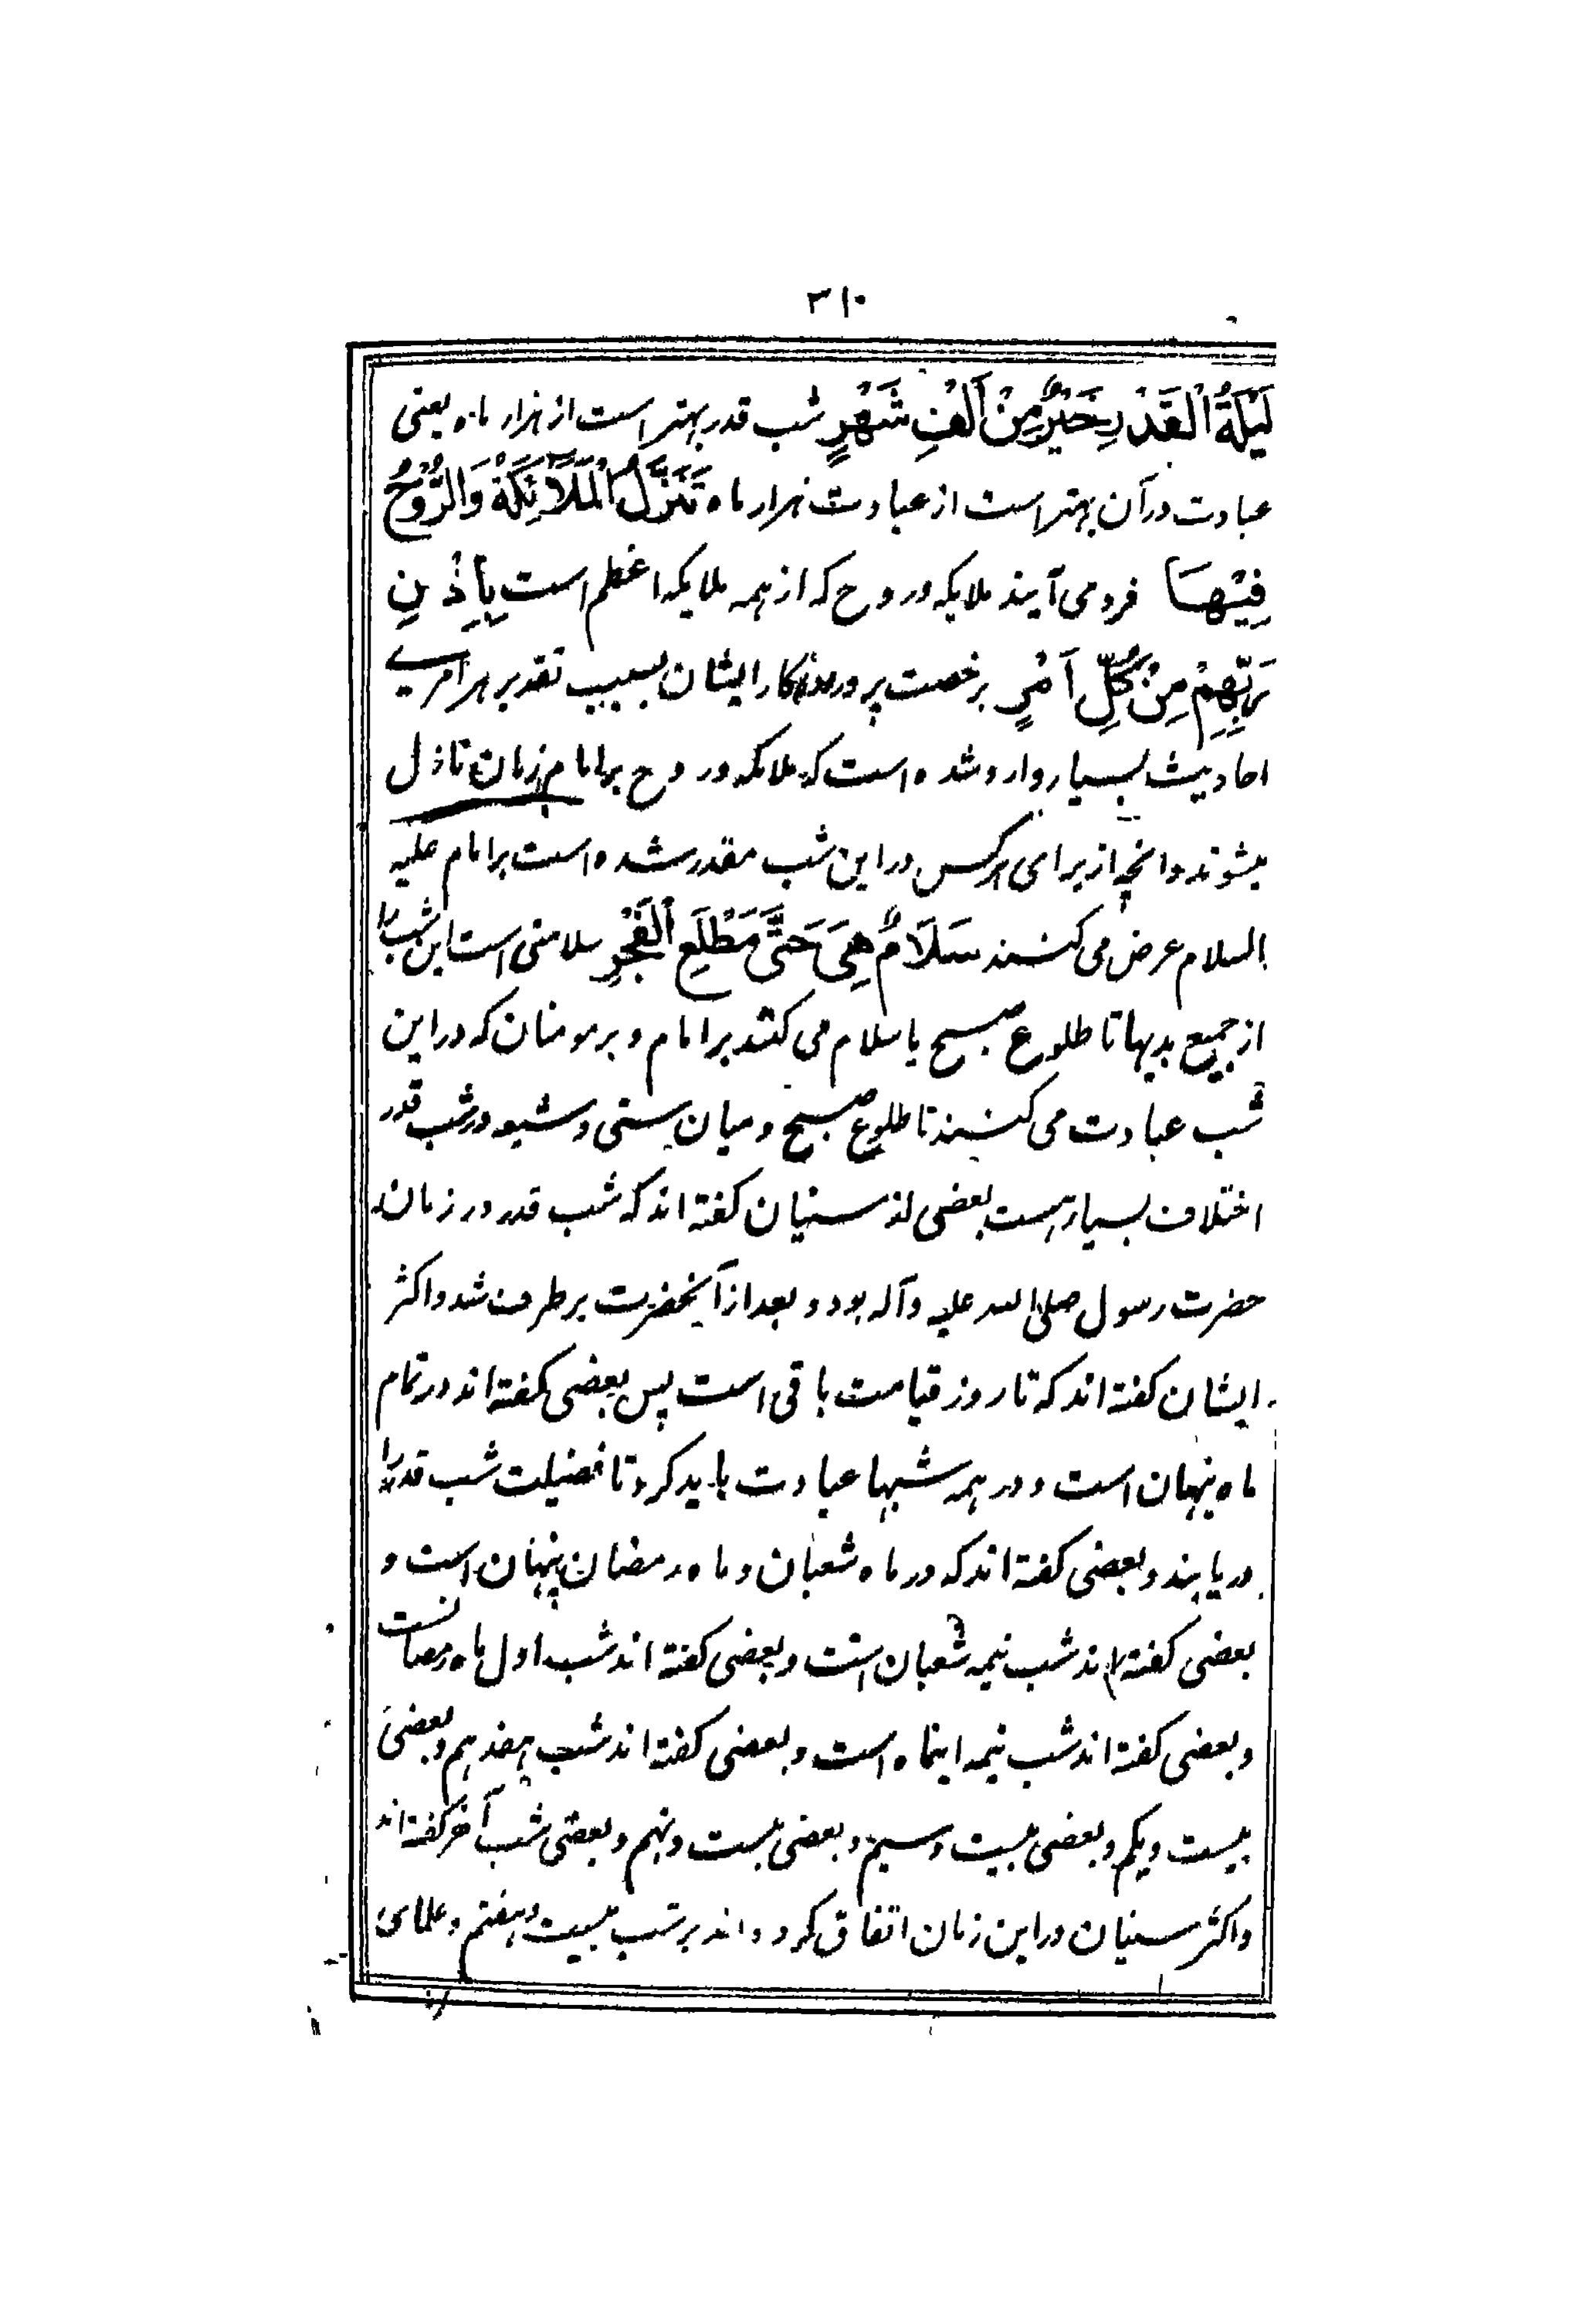 ۳۱۰
لَيْلَةُ الْقَدْرِ خَيْرٌ مِنْ أَلْفِ شَهْرٍ شب قدر بهتر است از هزار ماه یعنی
عبادت در آن بهتر است از عبادت هزار ماه تَنَزَّلُ الْمَلَآئِكَةُ وَالرُّوْحُ
فِيْهَا فرود می آیند ملایکه و روح که از همه ملایکه اعظم است بِاِذْنِ
رَبِّهِمْ مِنْ كُلِّ اَمْرٍ برخصت پروردگار ایشان بسبب تقدیر هر امرے
احادیث بسیار وارد شده است که ملائکه و روح بر امام زمان نازل
میشوند و آنچه از برای هر کس در این شب مقدر شده است بر امام علیه
السلام عرض می کنند سَلَامٌ هِيَ حَتَّى مَطْلَعِ الْفَجْرِ سلامتی است این شب را
از جمیع بدیها تا طلوع صبح یا سلام می کنند بر امام و بر مومنان که در این
شب عبادت می کنند تا طلوع صبح و میان سنی و شیعه در شب قدر
اختلاف بسیار هست بعضی از سنیان گفته اند که شب قدر در زمان
حضرت رسول صلی الله علیه وآله بود و بعد از آنحضرت برطرف شد و اکثر
ایشان گفته اند که تا روز قیامت باقی است پس بعضی گفته اند در تمام
ماه پنهان است و در همه شبها عبادت باید کرد تا فضیلت شب قدر را
دریابند و بعضی گفته اند که در ماه شعبان و ماه رمضان پنهان است و
بعضی گفته اند شب نیمه شعبان است و بعضی گفته اند شب اول ماه رمضانست
و بعضی گفته اند شب نیمه اینماه است و بعضی گفته اند شب هفدهم و بعضی
بیست و یکم و بعضی بیست و سیم و بعضی بیست و نهم و بعضی شب آخر گفته اند
و اکثر سنیان در این زمان اتفاق کرده اند بر شب بیست و هفتم و علمای